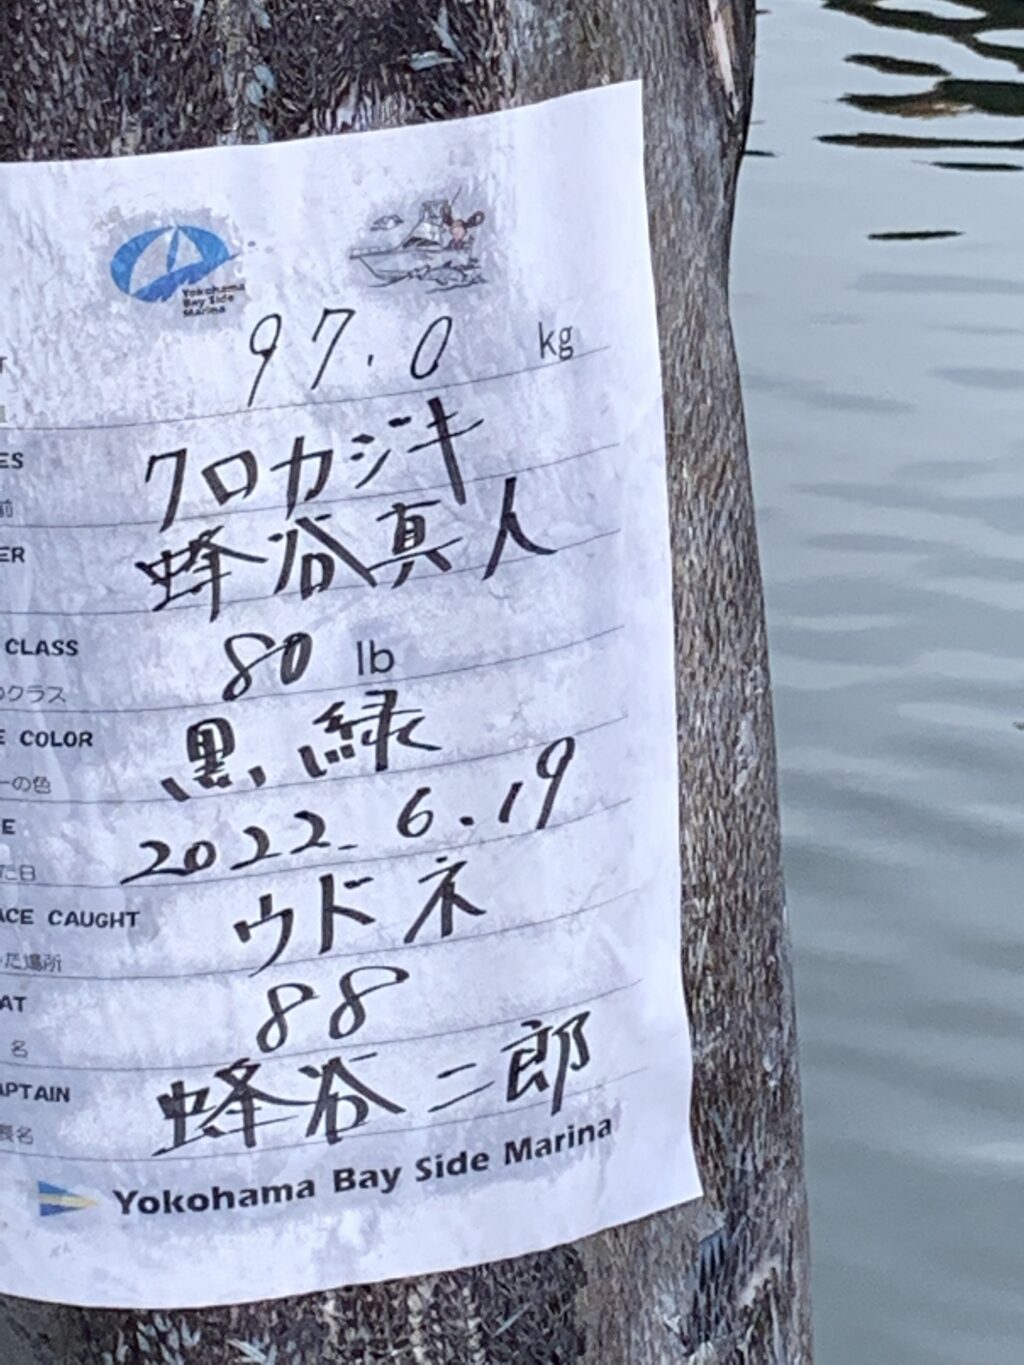 Yokohama
Bay Side
Marina
T
97.0 kg
ES
クロカジキ
前
ER
蜂谷真人
CLASS
80 lb
のクラス
E COLOR
黒、緑
ーの色
E
2022.6.19
た日
ACE CAUGHT
ウドネ
った場所
AT
88
名
APTAIN
蜂谷二郎
長名
Yokohama Bay Side Marina